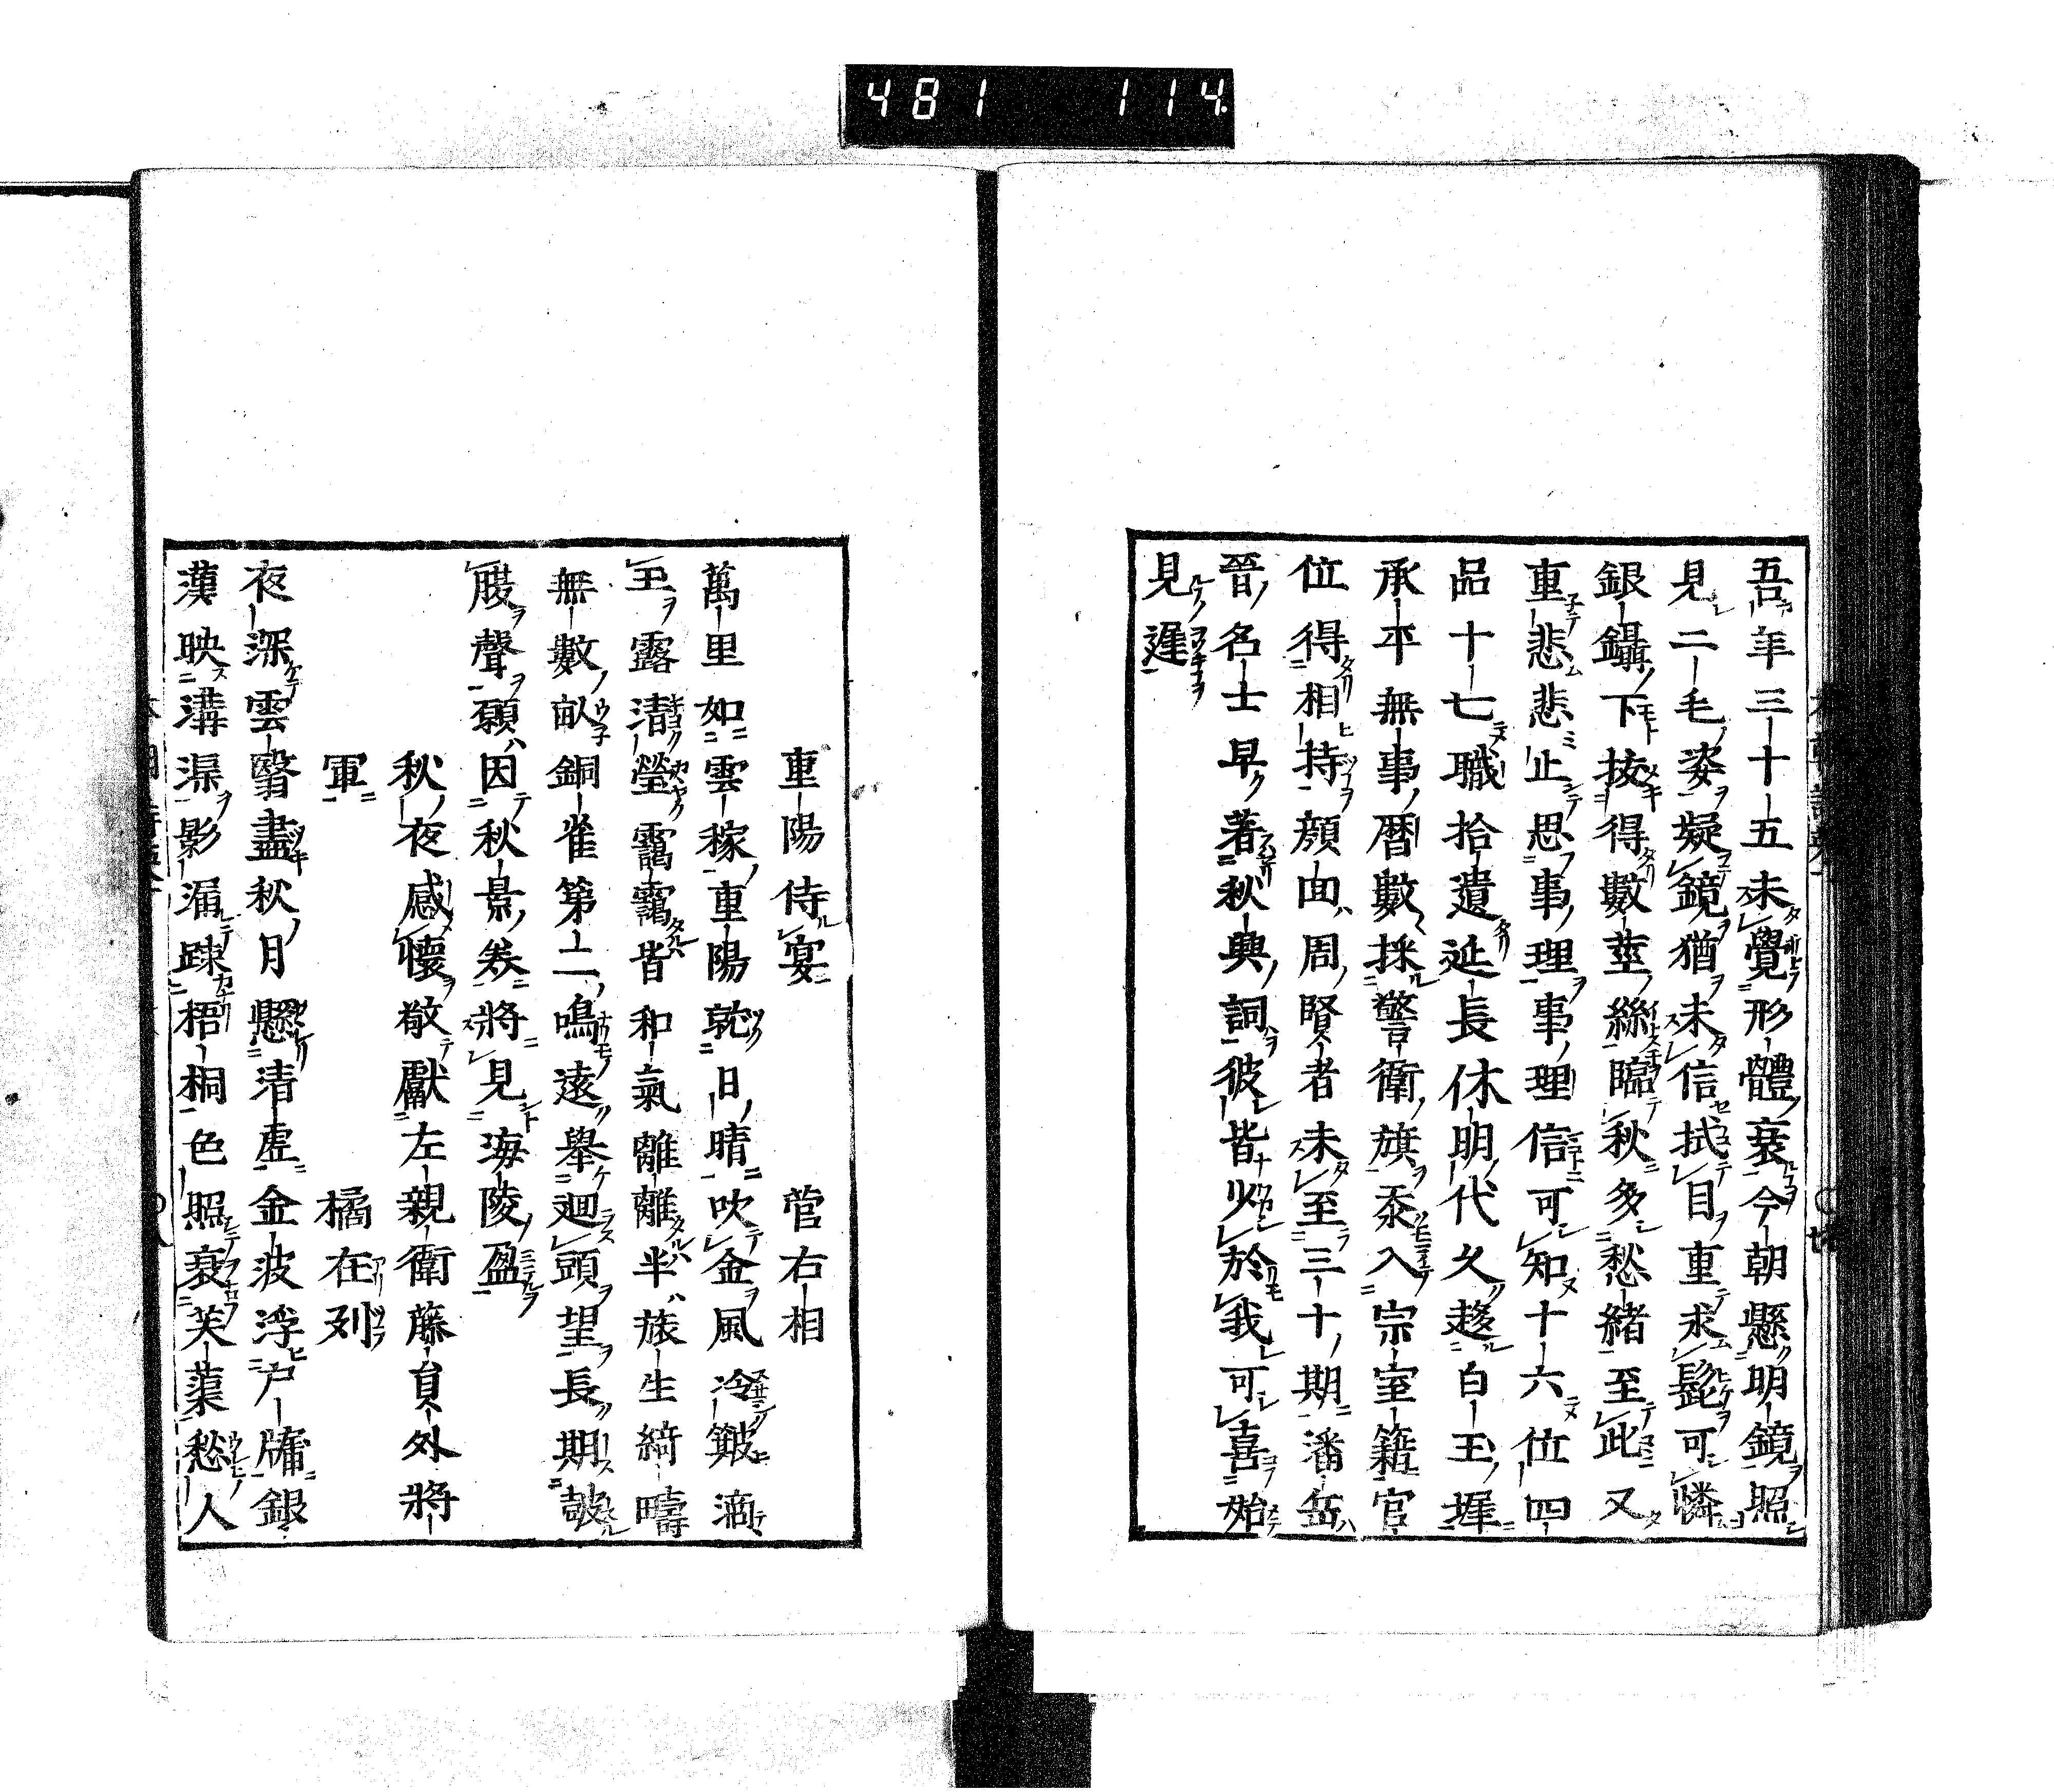 481 114
吾年三十五未覺形體衰今朝懸明鏡照
見二毛姿疑鏡猶未信拭目重求髭可憐
銀鑷下抜得數莖絲臨秋多愁緒至此又
重悲悲止思事理事理信可知十六位四
品十七職拾遺延長休明代久趍白玉墀
承平無事暦數採警衛旗忝入宗室籍官
位得相持顔回周賢者未至三十期潘岳
晉名士早著秋興詞彼皆少於我可喜始
見遲
重陽侍宴 菅右相
萬里如雲稼重陽乾日晴吹金風冷皺滴
玉露清瑩靄靄皆和氣離離半旅生綺疇
無數畝銅雀第二鳴遠舉廻頭望長期鼓
腹聲願因秋景炎將見海陵盈
秋夜感懷敬獻左親衛藤員外將
軍 橘在列
夜深雲翳盡秋月懸清虚金波浮户牖銀
漢映溝渠影漏踈梧桐色照衰芙蕖愁人